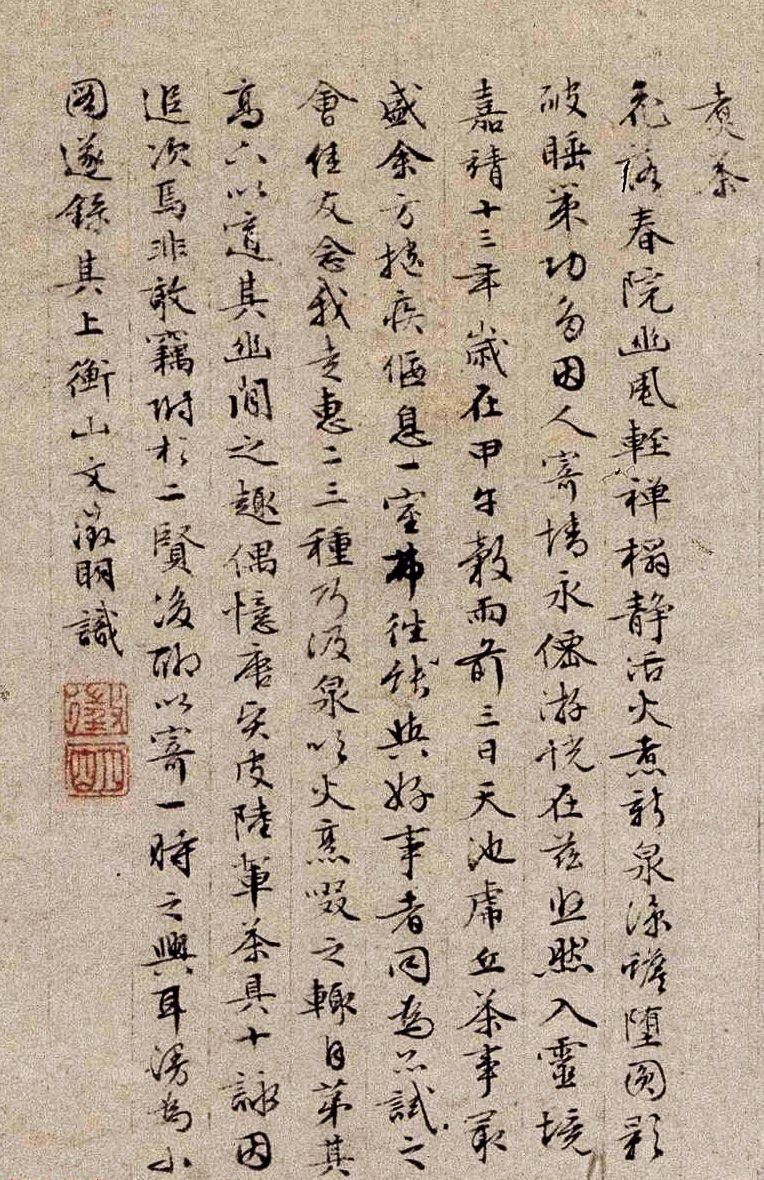 煮茶
花落春院幽風輕禅榻静活火煮新泉涼蟾堕圓影
破睡策功多因人寄情永僊遊恍在茲悠然入靈境
嘉靖十三年歲在甲午穀雨前三日天池虎丘茶事最
盛余方抱疾偃息一室弗往能與好事者同為品試之
會佳友念我走惠二三種乃汲泉以火烹啜之輒自第其
高下以適其幽閒之趣偶憶唐賢皮陸輩茶具十詠因
追次焉非敢竊附於二賢後聊以寄一時之興耳漫為小
圖遂錄其上衡山文徵明識
徵明